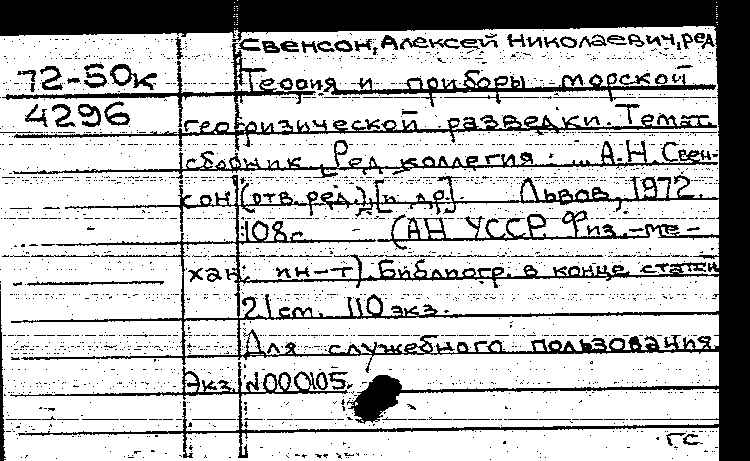 Свенсон, Алексей Николаевич, ред.
72-50к Теория и приборы морской
4296 геофизической разведки. Темат.
сборник. [Ред. коллегия: ... А.Н. Свен-
сон (отв. ред.), [и др]. Львов, 1972.
108с. (АН УССР. Физ.-ме-
хан. ин-т). Библиогр. в конце статей
21 см. 110 экз.
Для служебного пользования.
Экз. №000105.
ГС